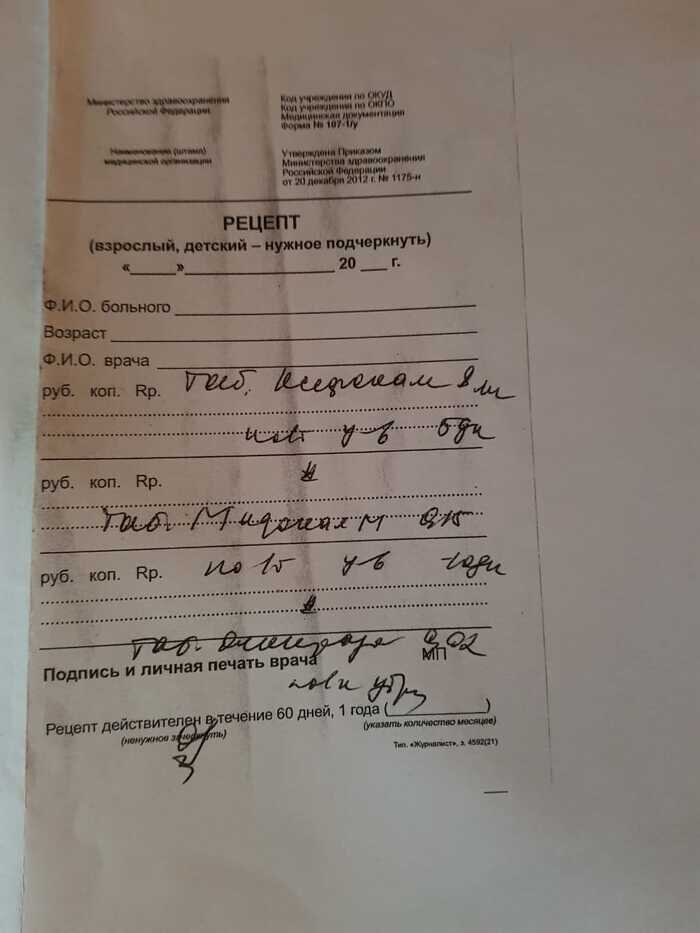 Министерство здравоохранения
Российской Федерации
Код учреждения по ОКУД
Код учреждения по ОКПО
Медицинская документация
Форма № 107-1/у
Наименование (штамп)
медицинской организации
Утверждена Приказом
Министерства здравоохранения
Российской Федерации
от 20 декабря 2012 г. № 1175-н
РЕЦЕПТ
(взрослый, детский – нужное подчеркнуть)
«_____»_______________ 20 ___ г.
Ф.И.О. больного
Возраст
Ф.И.О. врача
руб. коп. Rp. Таб. 8 мг
у-в
руб. коп. Rp. #
Таб. Мидокалм 0,15
руб. коп. Rp. по 1т у-в
#
Таб. 0,02
Подпись и личная печать врача МП
Рецепт действителен в течение 60 дней, 1 года (__________)
(ненужное зачеркнуть) (указать количество месяцев)
Тип. «Журналист», з. 4592(21)